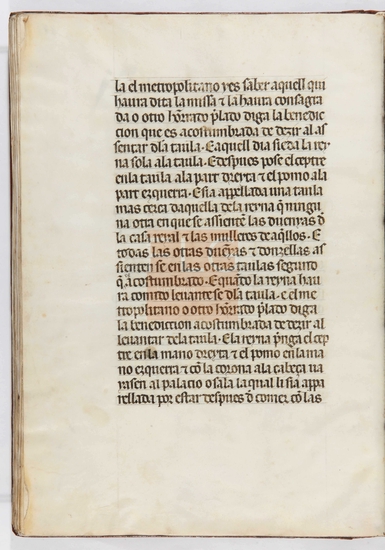 la el metropolitano yes saber aquell qui
haura dita la missa τ la haura consagra
da o otro hõrrato p̃lado diga la benedic
cion que es acostumbrada de dezir al as
sentar dla taula. E aquell dia sieda la rey
na sola ala taula. E despues pose el ceptre
en la taula ala part dreyta τ el pomo ala
part ezquerra. E sia appellada una taula
mas cerca daquella de la reyna q̃ ningu
na otra en que se assienten las duenyas d̃
la casa reyal τ las mulleres de aq̃llos. E
todas las otras duenyas τ donzellas as
sienten se en las otras taulas seguito
q̃ acostumbrado. E quãdo la reyna hau
ra comito levante se dla taula. e el me
tropolitano o otro hõrrato p̃lado diga
la benediction acostumbrada de dezir al
levantar de la taula. E la reyna p̃nga el cep
tre en la mano dreyta τ el pomo en la ma
no ezquerra τ cõ la corona ala cabeça va
yasen al palacio o sala la qual li sia appa
rellada por estar despues d̃ comer cõ las